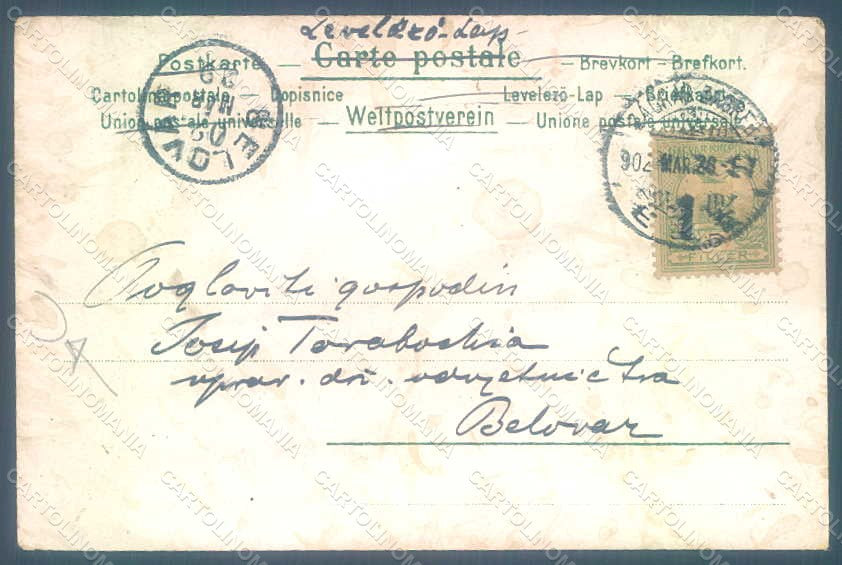 Levelező-Lap
Postkarte — Carte postale — Brevkort – Brefkort.
Cartolina postale — Dopisnice Levelező-Lap — Briefkaart
Union postale universelle — Weltpostverein — Unione postale universale
BELOVAR
902 MAR. 26
FILLÉR
gospodin
Josip Tarabochia
uprav. odvjetnictva
Belovar
CARTOLINOMANIA